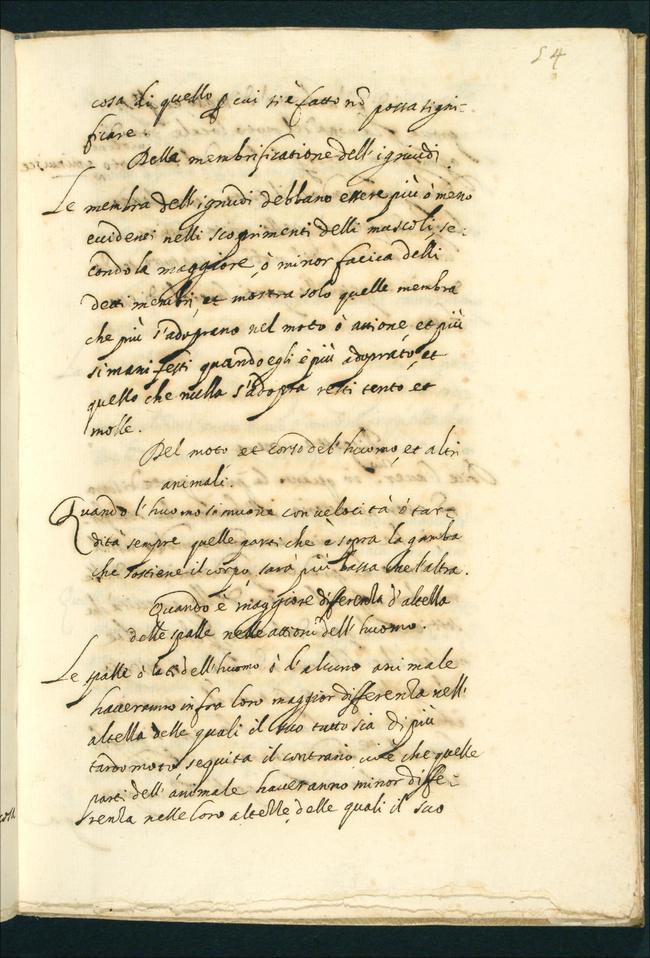 54
cosa di quello p cui si è fatto nō possa signi-
ficare.
Della membrificatione dell'ignudi
Le membra dell'ignudi debbano essere più ò meno
euidenti nelli scoprimenti delli muscoli se-
condo la maggiore, ò minor facica delli
detti membri, et mostra solo quelle membra
che più s'adoprano nel moto ò attione, et più
si manifesti quando egli è più adoprato, et
quello che nulla s'adopra resti lento, et
molle.
Del moto et corso del'huomo, et altri
animali.
Quando l'huomo si muoue con velocità ò tar-
dità sempre quelle parti che è sopra la gamba
che sostiene il corpo, sarà più bassa che l'altra.
Quando è maggiore differenza d'altezza
delle spalle nelle attioni dell'huomo.
Le spalle ò lati dell'huomo ò d'alcuno animale
haueranno infra loro maggior differenza nell'
altezza delle quali il suo tutto sia di più
tardo moto, seguita il contrario cioè che quelle
parti dell'animale haueranno minor diffe-
renza nelle loro altezze, delle quali il suo